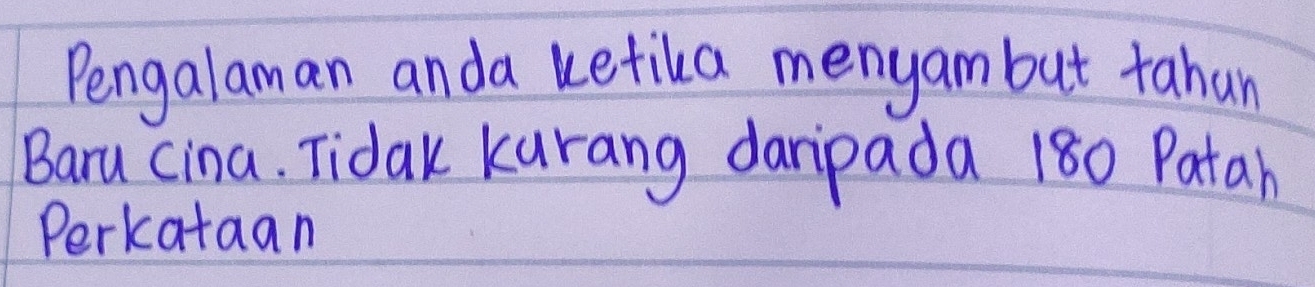 Pengalaman anda ketika menyambut tahun
Baru Cina. Tidak kurang daripada 180 Patah
Perkataan